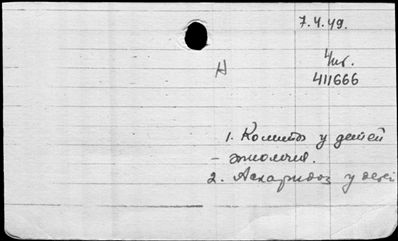 7.4.49.
Чит.
Н
411666
1. Колиты у детей
- этиология.
2. Аскаридоз у детей